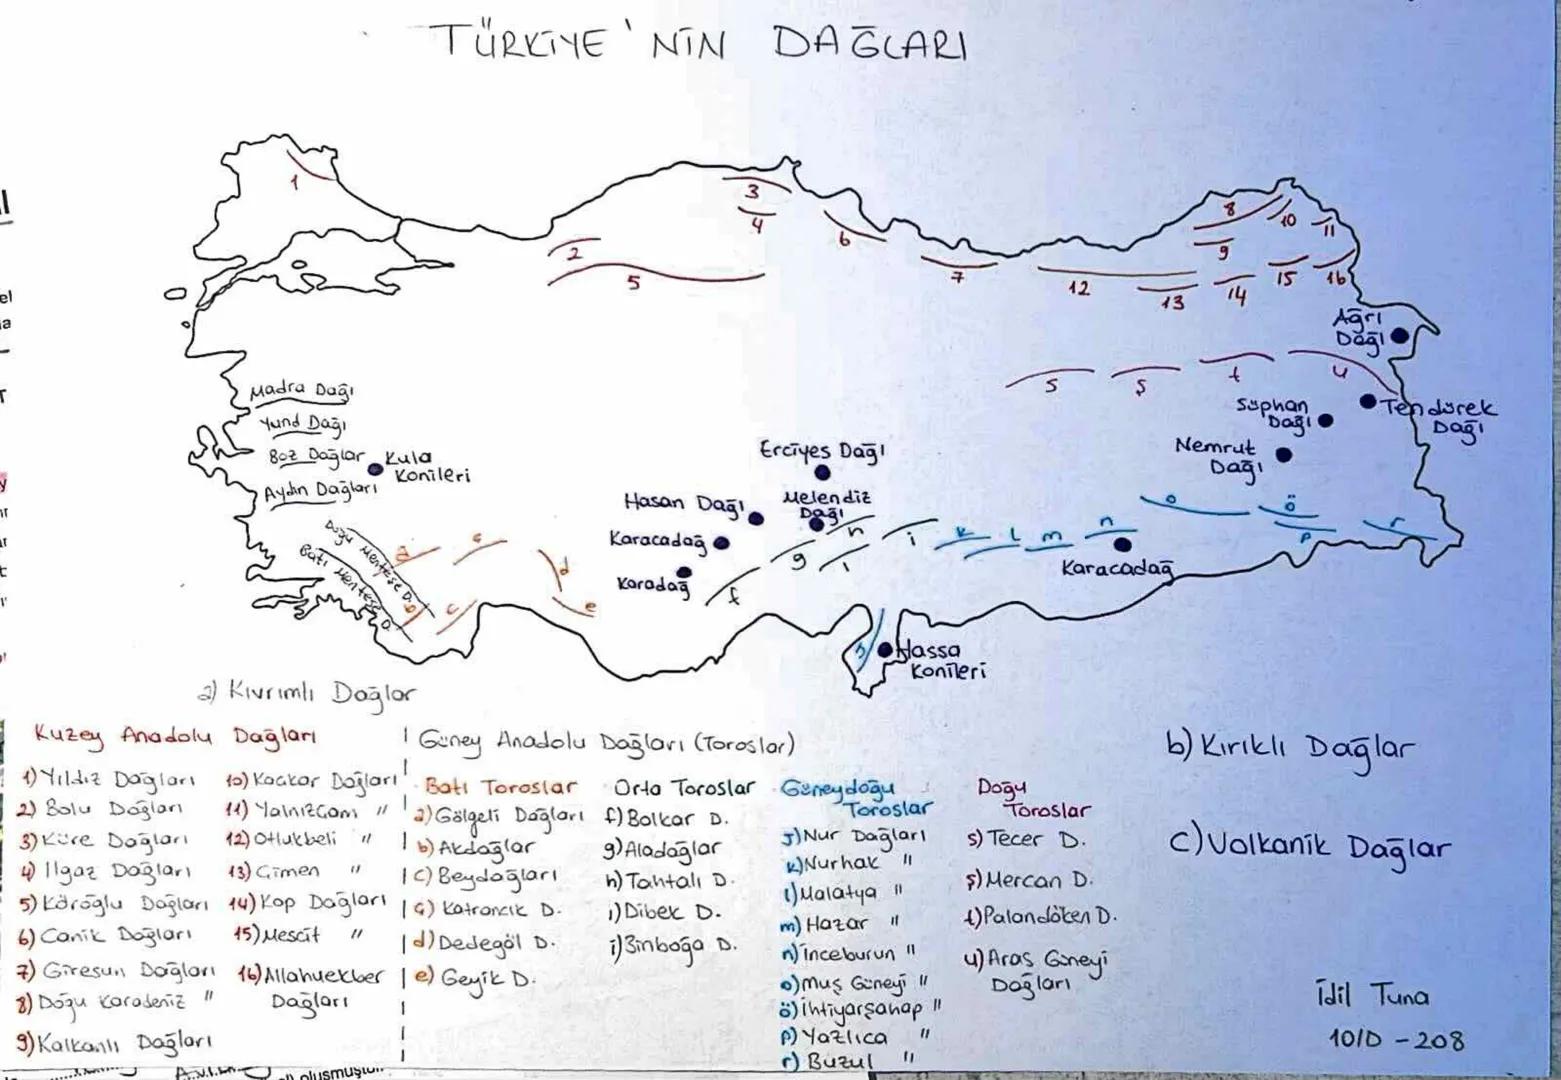 TÜRKİYE'NİN DAĞLARI
1
2
3
4
5
6
7
8
9
10
11
12
13
14
15
16
Ağrı
Dağı
s
ş
t
u
Süphan
Dağı
Tendürek
Dağı
Nemrut
Dağı
Madra Dağı
Yund Dağı
Boz Dağlar
Kula
Konileri
Aydın Dağları
Erciyes Dağı
Hasan Dağı
Melendiz
Dağı
Karacadağ
Karadağ
Doğu Menteşe D.
Batı Menteşe D.
a
ç
d
b
c
e
f
g
h
ı
i
k
l
m
n
o
ö
p
r
Karacadağ
j
Hassa
Konileri
a) Kıvrımlı Dağlar
Kuzey Anadolu Dağları
1) Yıldız Dağları
2) Bolu Dağları
3) Küre Dağları
4) Ilgaz Dağları
5) Köroğlu Dağları
6) Canik Dağları
7) Giresun Dağları
8) Doğu Karadeniz "
9) Kalkanlı Dağları
10) Kackar Dağları
11) Yalnızcam "
12) Otlukbeli "
13) Çimen "
14) Kop Dağları
15) Mescit "
16) Allahuekber
Dağları
Güney Anadolu Dağları (Toroslar)
Batı Toroslar
a) Gölgeli Dağları
b) Akdağlar
c) Beydağları
ç) Katrancık D.
d) Dedegöl D.
e) Geyik D.
Orta Toroslar
f) Bolkar D.
g) Aladağlar
h) Tahtalı D.
ı) Dibek D.
i) Binboğa D.
Güneydoğu
Toroslar
J) Nur Dağları
k) Nurhak "
l) Malatya "
m) Hazar "
n) İnceburun "
o) Muş Güneyi "
ö) İhtiyarşahap "
p) Yazlıca "
r) Buzul "
Doğu
Toroslar
s) Tecer D.
ş) Mercan D.
t) Palandöken D.
u) Aras Güneyi
Dağları
b) Kırıklı Dağlar
c) Volkanik Dağlar
İdil Tuna
10/D - 208